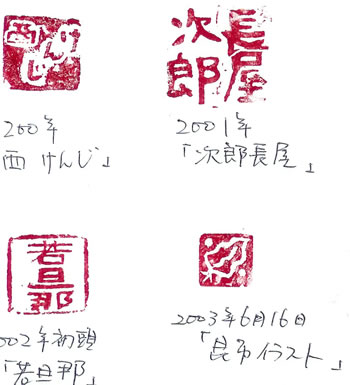 西けんじ
2001年
西 けんじ」
次郎
長屋
2001年
「次郎長屋」
若旦那
002年初頭
「若旦那」
2003年6月16日
「昆布イラスト」